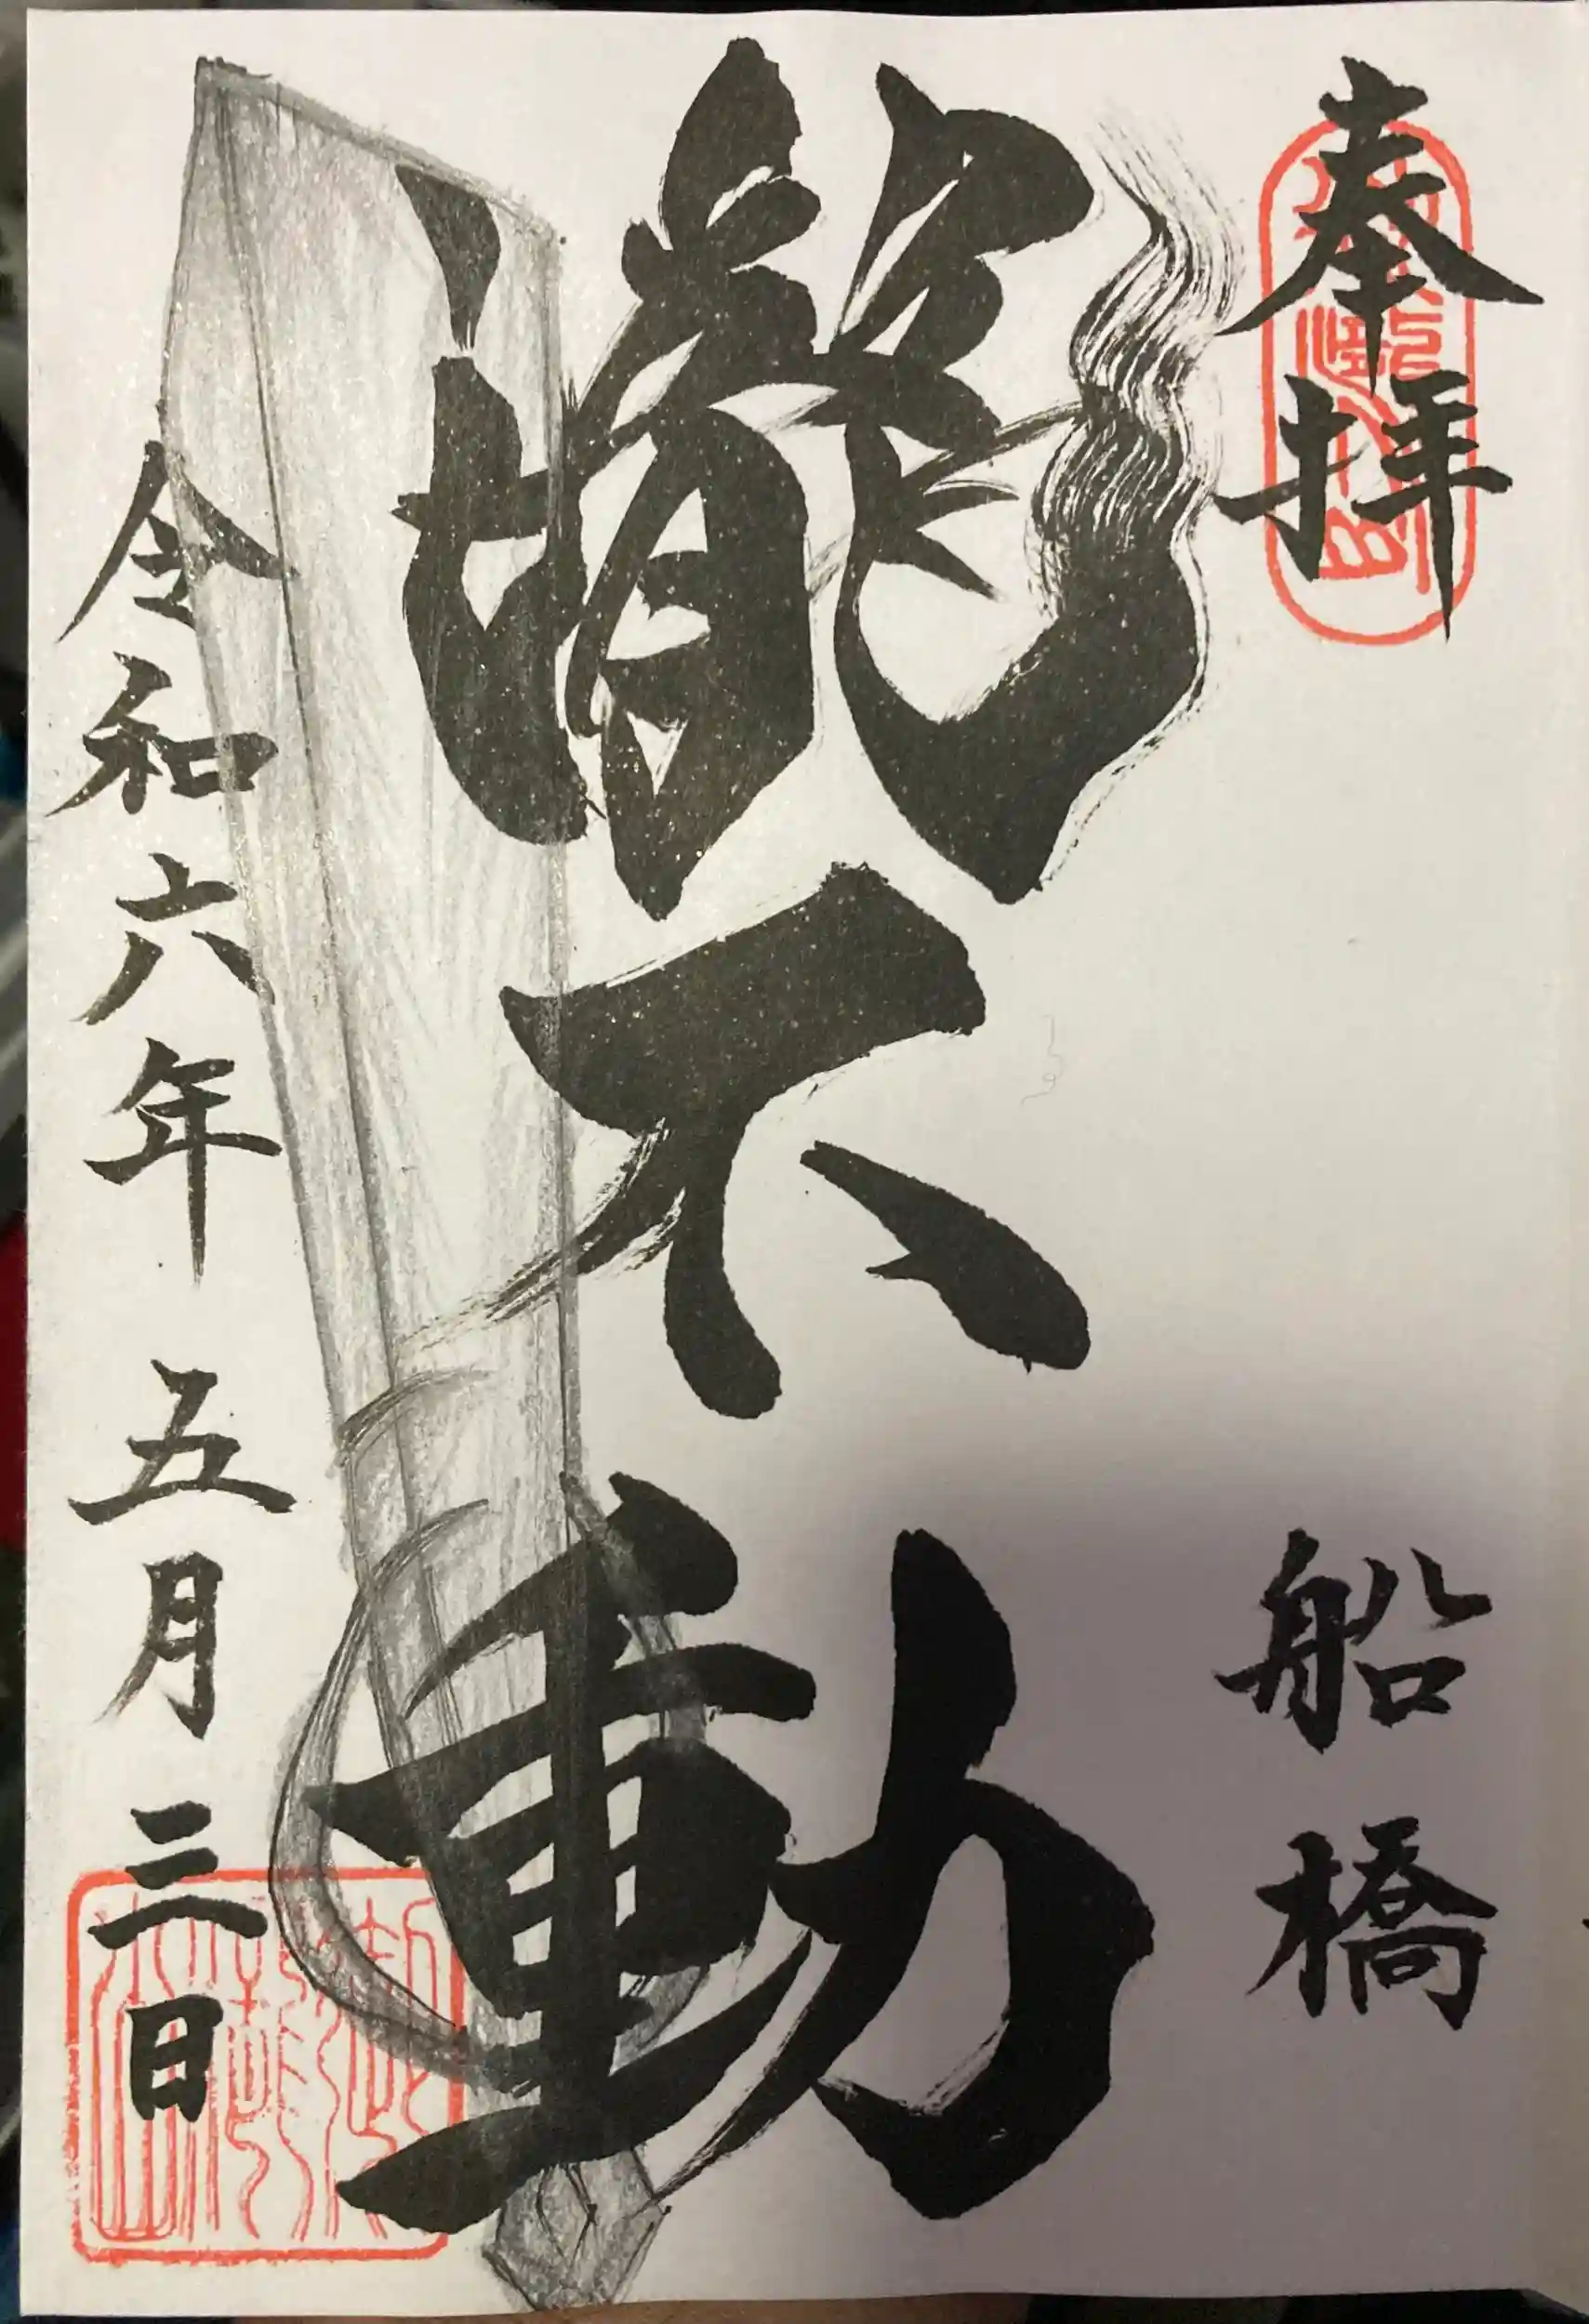 奉拝
船橋
瀧不動
令和六年 五月三日